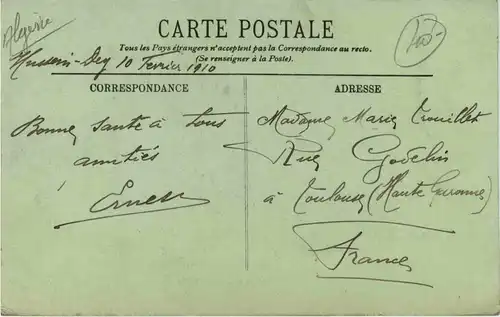 Algérie
CARTE POSTALE
Tous les Pays étrangers n'acceptent pas la Correspondance au recto.
(Se renseigner à la Poste).
Hussein-Dey 10 Fevrier 1910
CORRESPONDANCE
Bonne santé à tous
amitiés
Ernest
ADRESSE
Madame Marie Trouillet
Rue Godelin
à Toulouse (Haute Garonne)
France